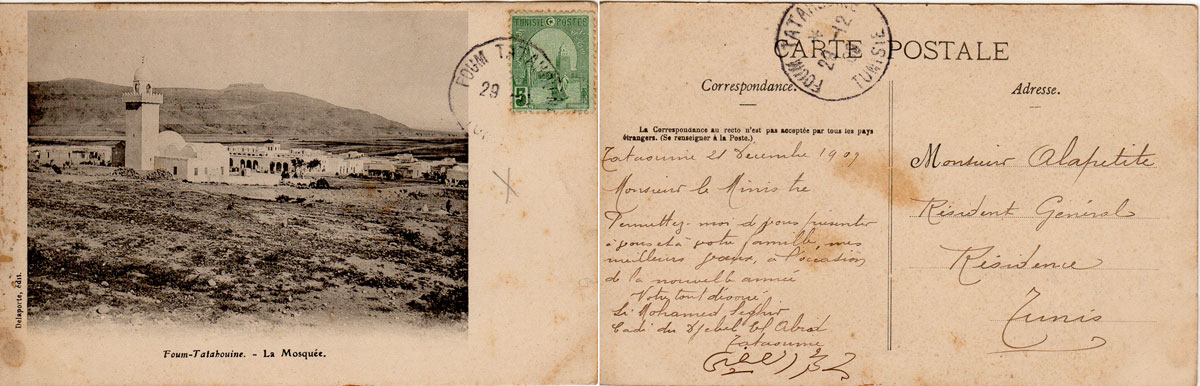 TUNISIE POSTES
5
FOUM TATAHOUINE
29
Delaporte, édit.
Foum-Tatahouine. - La Mosquée.
FOUM TATAHOUINE
29 -12
TUNISIE
CARTE POSTALE
Correspondance.
Adresse.
La Correspondance au recto n'est pas acceptée par tous les pays
étrangers. (Se renseigner à la Poste.)
Tataouine 21 Decembre 1909
Monsieur le Ministre
Permettez-moi de vous présenter
à vous et à votre famille, mes
meilleurs vœux, à l'occasion
de la nouvelle année
Votre tout dévoué
Si Mohamed Seghir
Cadi du Djebel El Abiod
Tataouine
Monsieur Alapetite
Résident Général
Résidence
Tunis